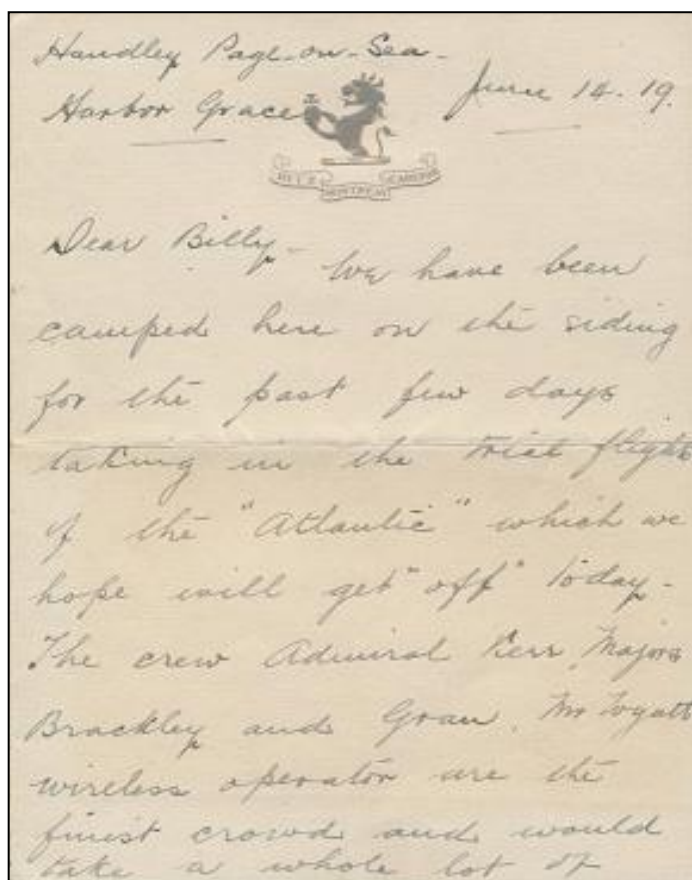 Handley Page-on-Sea-
Harbor Grace
June 14. 19.
MONTREAL CANADA
Dear Billy- We have been
camped here on the siding
for the past few days
taking in the trial flights
of the "Atlantic" which we
hope will get "off" today-
The crew Admiral Kerr, Majors
Brackley and Gran, Mr Wyatt
wireless operator are the
finest crowd and would
take a whole lot of